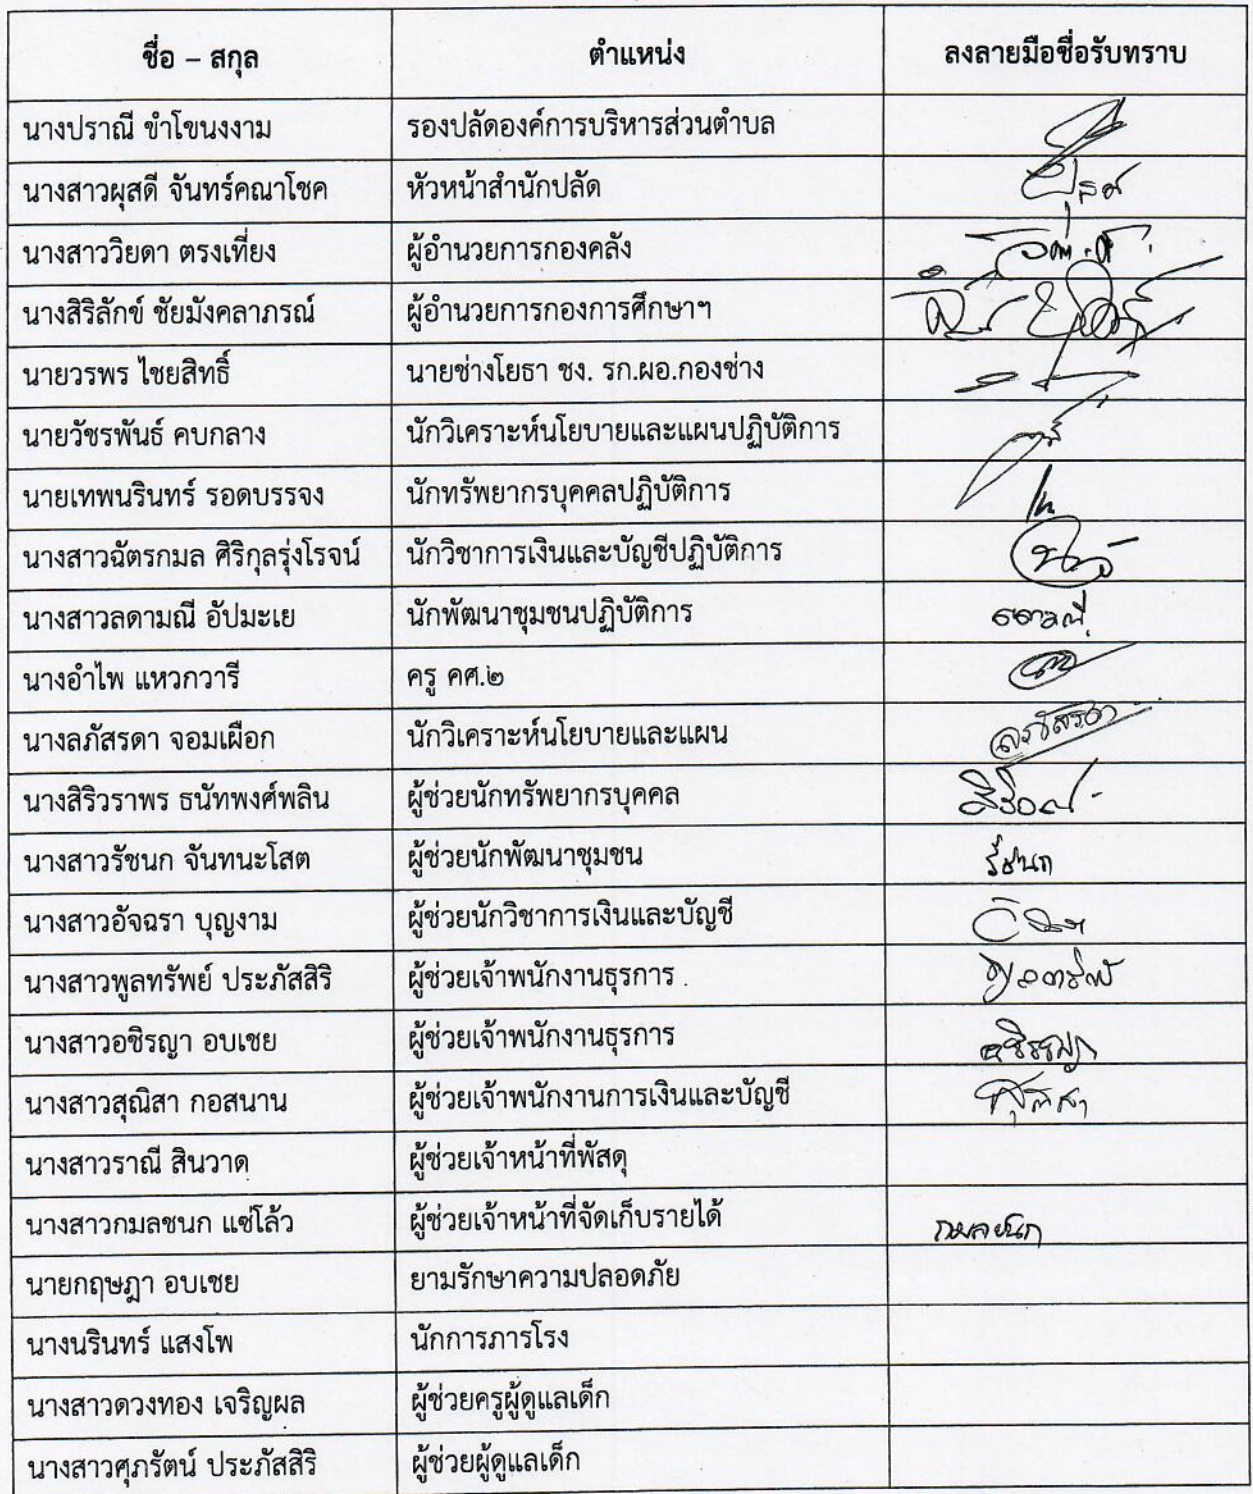 ชื่อ – สกุล ตำแหน่ง ลงลายมือชื่อรับทราบ
นางปราณี ขำโขนงงาม รองปลัดองค์การบริหารส่วนตำบล
นางสาวผุสดี จันทร์คณาโชค หัวหน้าสำนักปลัด
นางสาววิยดา ตรงเที่ยง ผู้อำนวยการกองคลัง
นางสิริลักข์ ชัยมังคลาภรณ์ ผู้อำนวยการกองการศึกษาฯ
นายวรพร ไชยสิทธิ์ นายช่างโยธา ชง. รก.ผอ.กองช่าง
นายวัชรพันธ์ คบกลาง นักวิเคราะห์นโยบายและแผนปฏิบัติการ
นายเทพนรินทร์ รอดบรรจง นักทรัพยากรบุคคลปฏิบัติการ
นางสาวฉัตรกมล ศิริกุลรุ่งโรจน์ นักวิชาการเงินและบัญชีปฏิบัติการ
นางสาวลดามณี อัปมะเย นักพัฒนาชุมชนปฏิบัติการ ลดามณี
นางอำไพ แหวกวารี ครู คศ.๒
นางลภัสรดา จอมเผือก นักวิเคราะห์นโยบายและแผน ลภัสรดา
นางสิริวราพร ธนัทพงศ์พลิน ผู้ช่วยนักทรัพยากรบุคคล
นางสาวรัชนก จันทนะโสต ผู้ช่วยนักพัฒนาชุมชน รัชนก
นางสาวอัจฉรา บุญงาม ผู้ช่วยนักวิชาการเงินและบัญชี
นางสาวพูลทรัพย์ ประภัสสิริ ผู้ช่วยเจ้าพนักงานธุรการ
นางสาวอชิรญา อบเชย ผู้ช่วยเจ้าพนักงานธุรการ อชิรญา
นางสาวสุณิสา กอสนาน ผู้ช่วยเจ้าพนักงานการเงินและบัญชี สุณิสา
นางสาวราณี สินวาด ผู้ช่วยเจ้าหน้าที่พัสดุ
นางสาวกมลชนก แซ่โล้ว ผู้ช่วยเจ้าหน้าที่จัดเก็บรายได้ กมลชนก
นายกฤษฎา อบเชย ยามรักษาความปลอดภัย
นางนรินทร์ แสงโพ นักการภารโรง
นางสาวดวงทอง เจริญผล ผู้ช่วยครูผู้ดูแลเด็ก
นางสาวศุภรัตน์ ประภัสสิริ ผู้ช่วยผู้ดูแลเด็ก